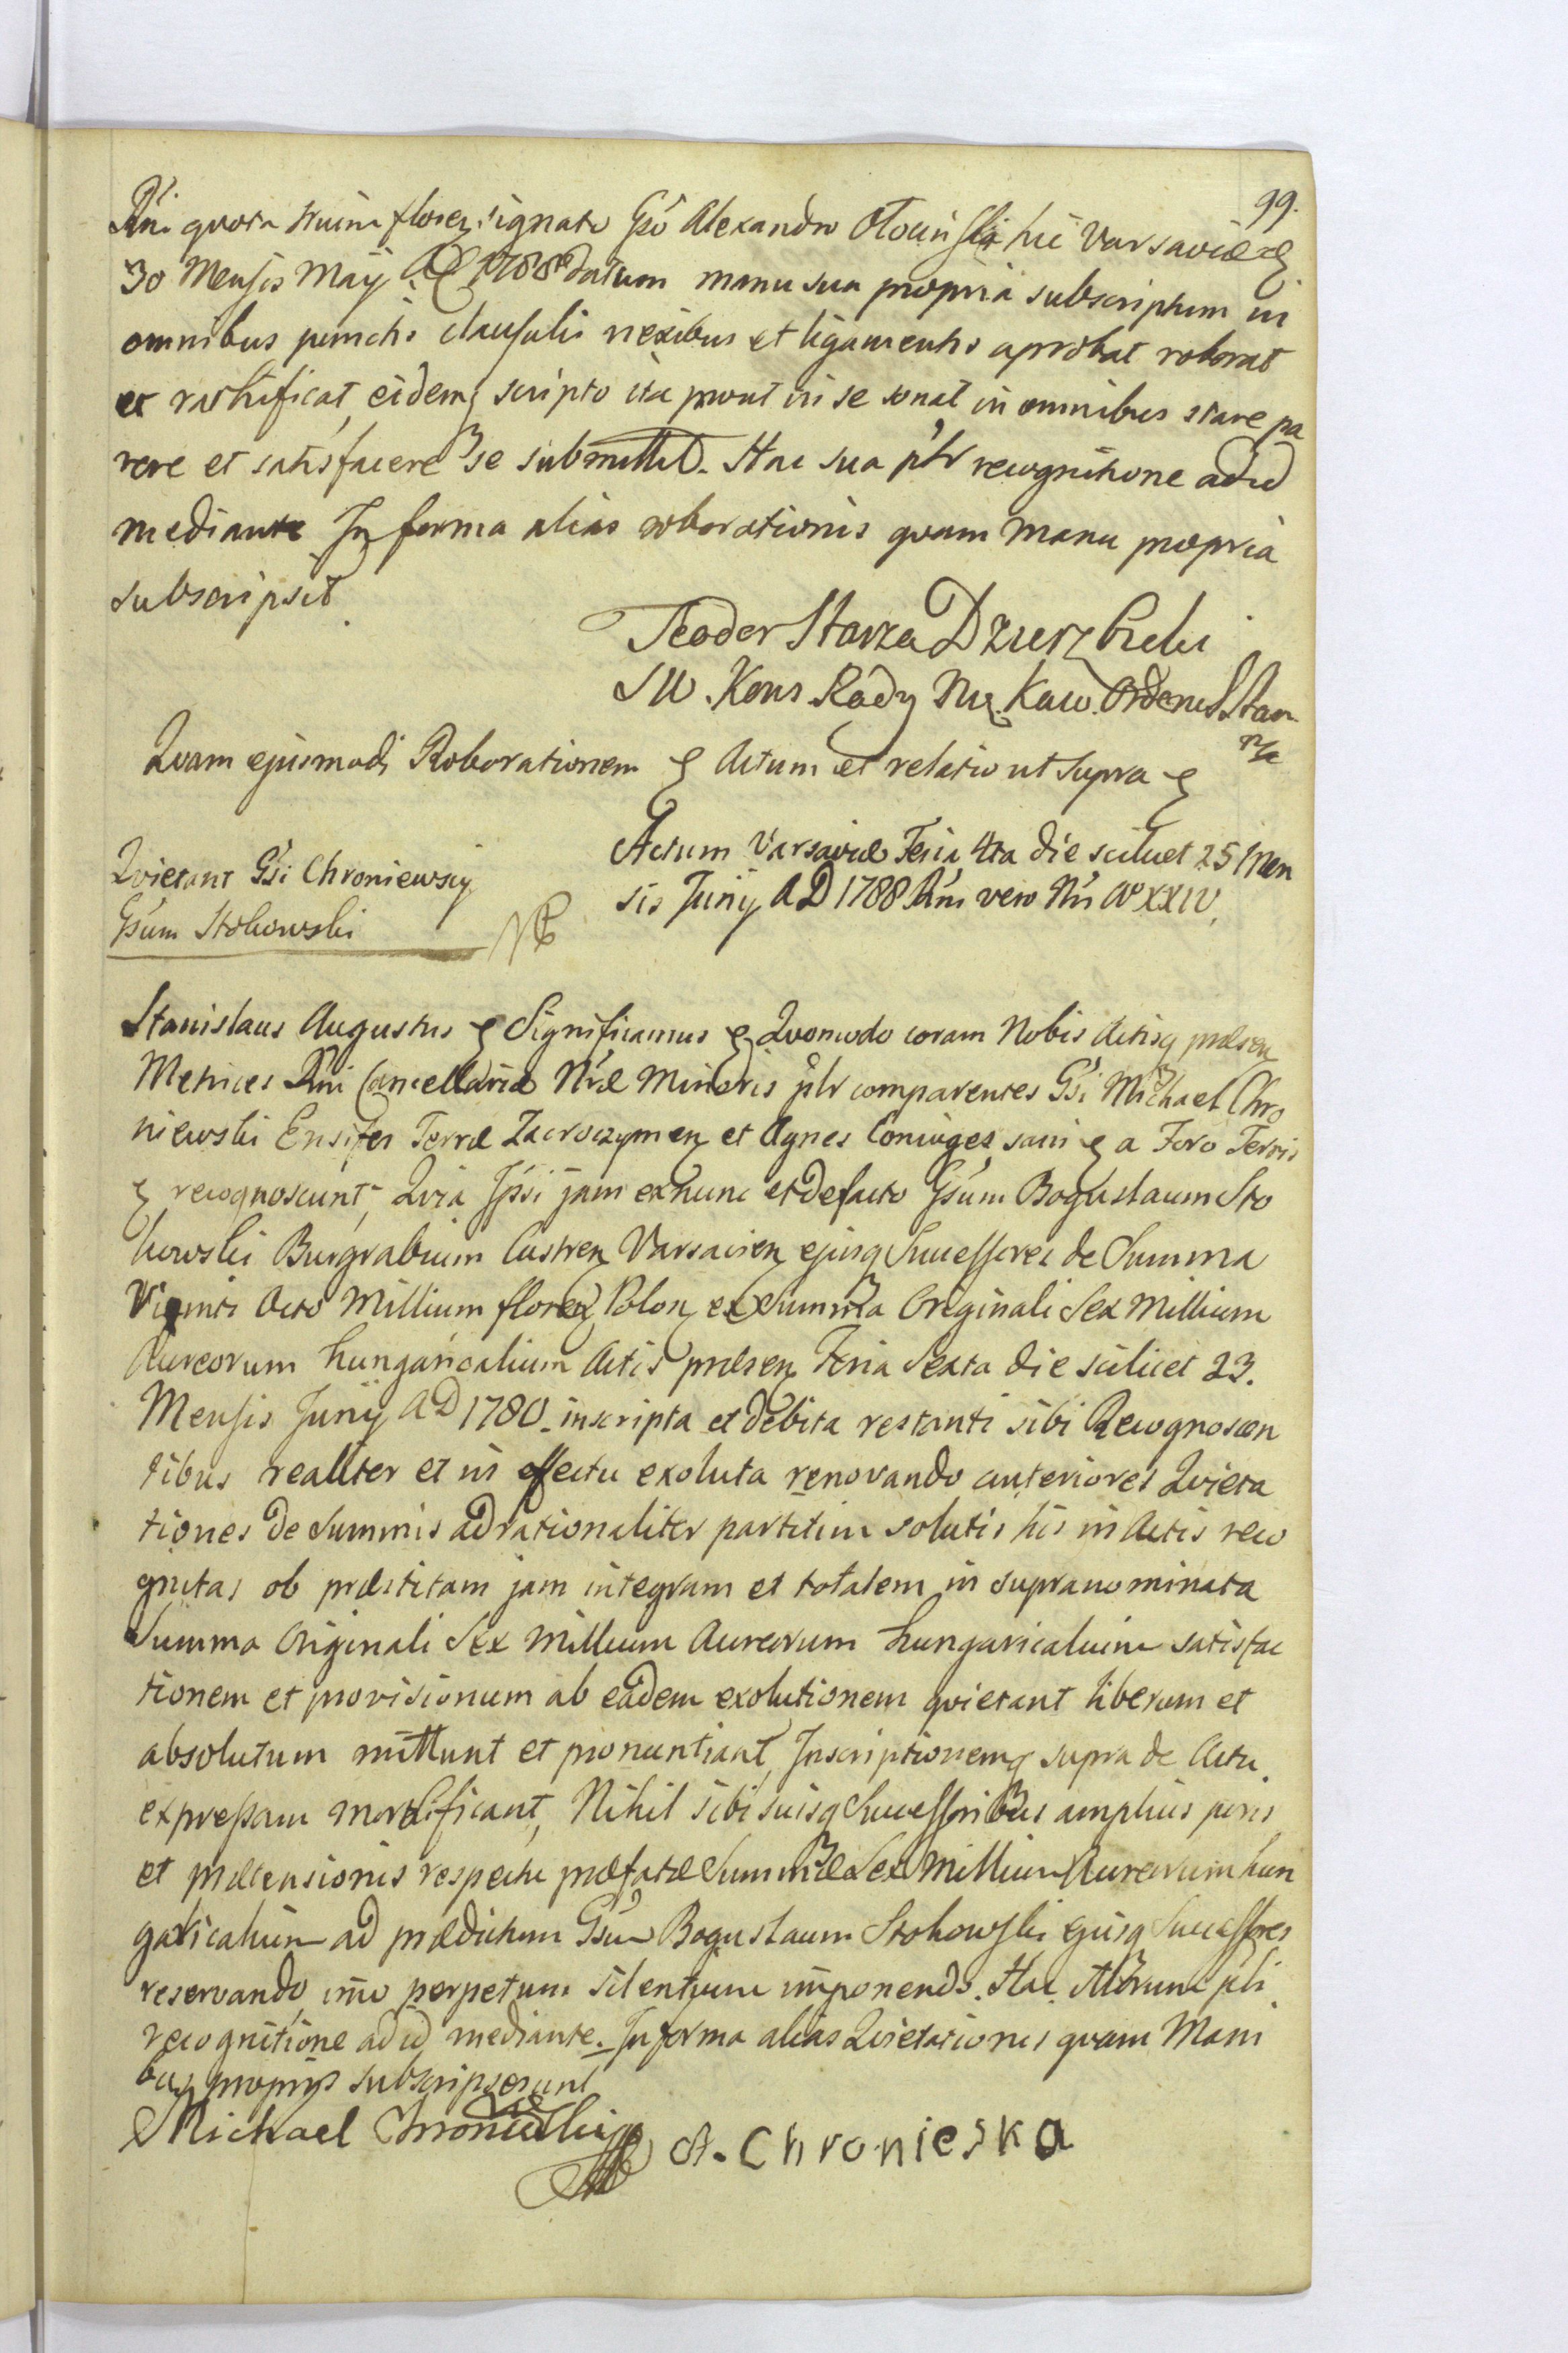 99.
Rni quota truim floren, signato Gso Alexandro Otocinski hic Varsaviæ &
30 Mensis Maij AD 1788 datum manu sua propria subscriptum in
omnibus punctis clausulis nexibus et ligamentis aprobat roborat
et rathificat, eidemq scripto ita prout in se sonat in omnibus stare pa
rere et satisfacere se submittit. Hac sua pltr recognitione ad id
mediante In forma alias roborationis quam manu propria
subscripsit.
Teodor Starza Dzierzbicki
Kons Rady Nu. Kaw. Orderu S Stan
mp
Quam ejusmodi Roborationem & Actum et relatio ut supra &
Quietant Gsi Chroniewscy
Gsum Stokowski
Actum Varsaviæ Feria 4ta die scilicet 25 Men
sis Junij AD 1788 Rni vero Nri Ao XXIV.
Stanislaus Augustus & Significamus & Quomodo coram Nobis Actisq præsen
Metrices Rni Cancellariæ Nræ Minoris pltr comparentes Gsi Michael Chro
niewski Ensifer Terræ Zakroczymen et Agnes Coniuges, sani & a Foro Terris
& recognoscunt, Quia Ipsi jam exnunc et defacto Gsum Boguslaum Sto
kowski Burgrabium Castren Varsavien ejusq Successores de Summa
Viginti Octo Millium floren Polon ex Summa Originali Sex Millium
Aureorum hungaricalium Actis præsen Feria Sexta die scilicet 23.
Mensis Junij AD 1780 inscripta et debita restanti sibi Recognoscen
tibus realiter et in effectu exoluta renovando anteriores Quieta
tiones de Summis ad rationaliter partitim solutis his in Actis reco
gnitas ob præstitam jam integram et totalem in supranominata
Summa Originali Sex Millium Aureorum hungaricalium satisfac
tionem et provisionum ab eadem exolutionem quietant liberum et
absolutum mittunt et pronuntiant, Inscriptionemq supra de Actu
expressam mortificant, Nihil sibi suisq Successoribus amplius juris
et prætensionis respectu præfatæ Summæ Sex Millium Aureorum hun
garicalium ad prædictum Gsum Boguslaum Stokowski ejusq Successores
reservando, imo perpetum silentium imponendo. Hac Motrum pli
recognitione ad id mediante. In forma alias Quietationis quam Mani
bus proprijs subscripserunt
Michael Chroniewski
A. Chronieska